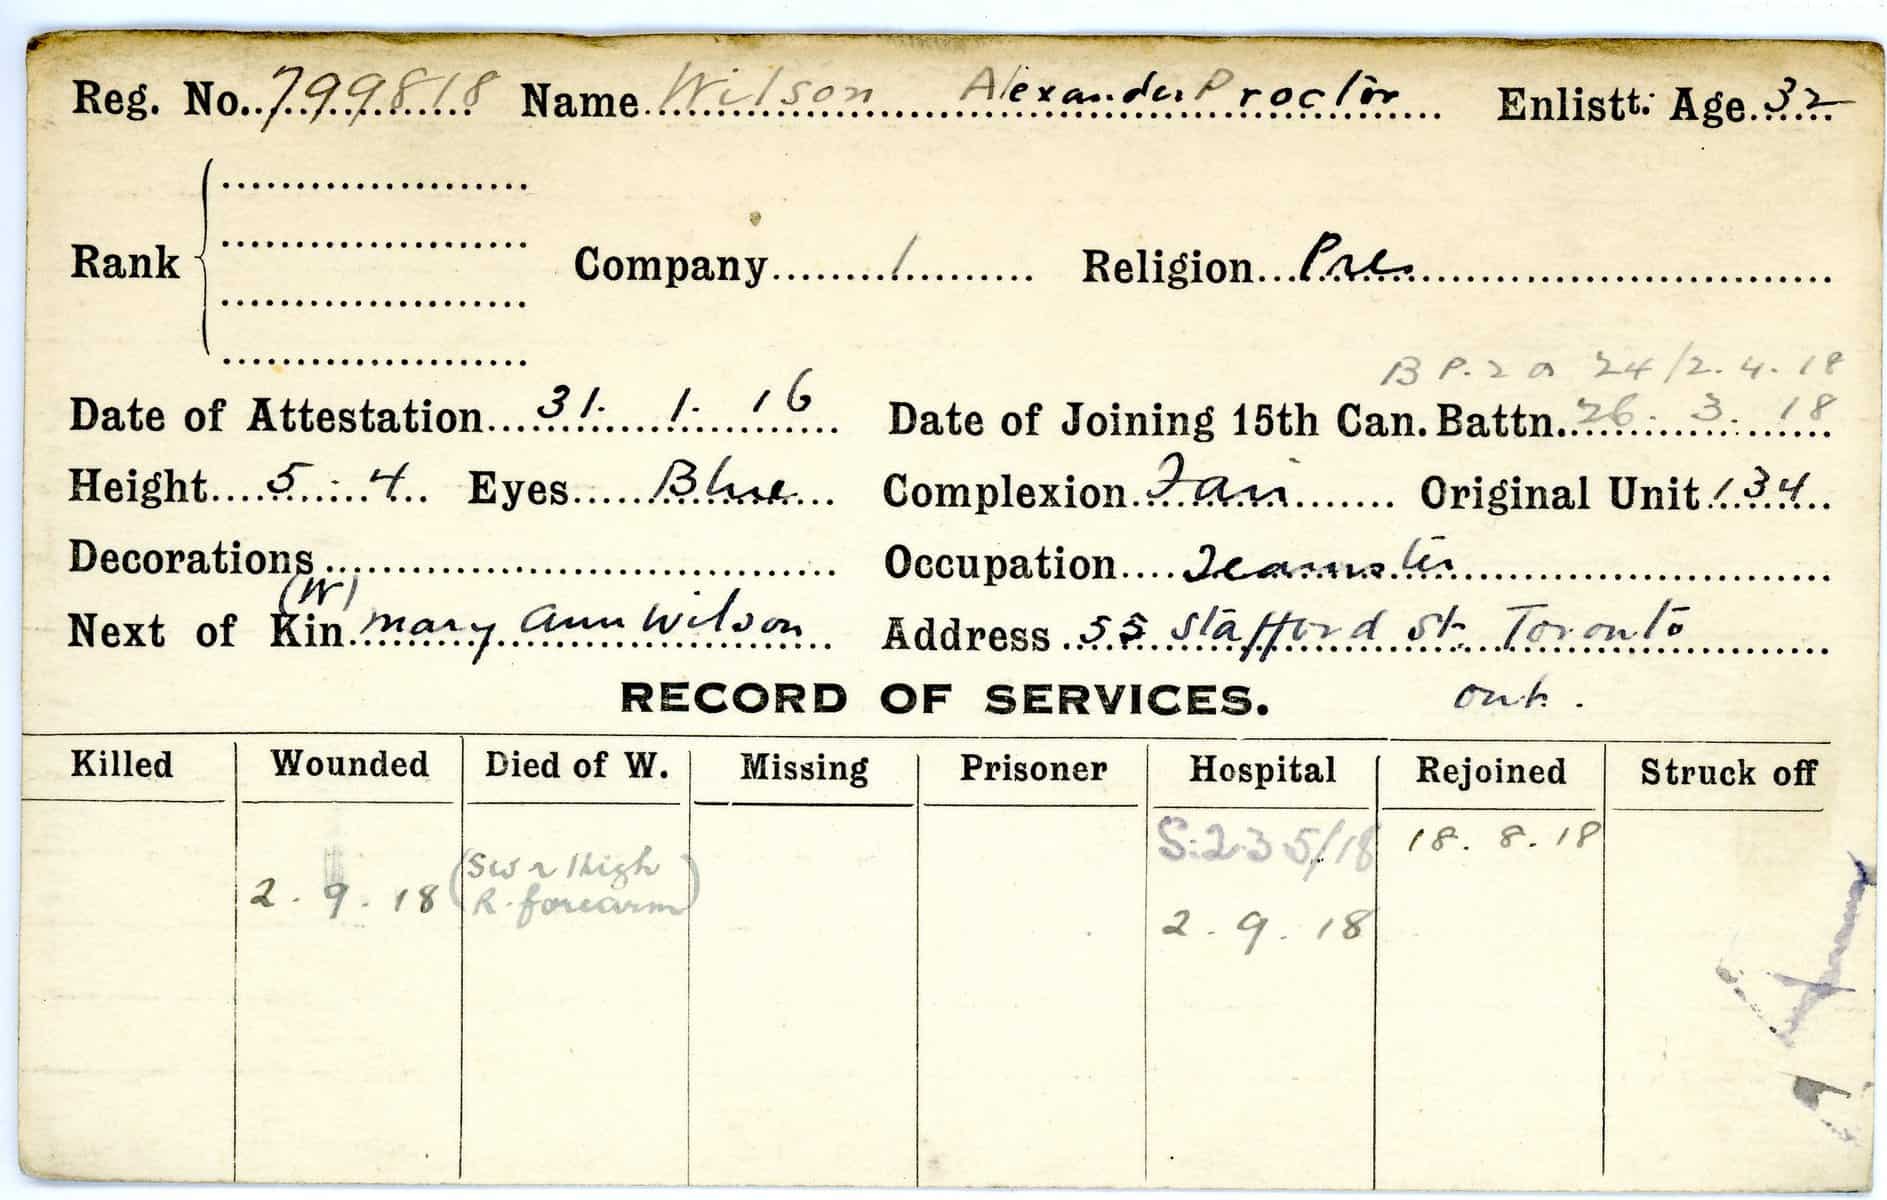 Reg. No. 799818 Name Wilson Alexander Proctor Enlistt. Age. 32
Rank Company 1 Religion Pres
B P. 2 O 24/2. 4. 18
Date of Attestation 31. 1. 16 Date of Joining 15th Can. Battn. 26. 3. 18
Height 5. 4 Eyes Blue Complexion Fair Original Unit 134
Decorations Occupation Teamster
(W)
Next of Kin Mary Ann Wilson Address 55 Stafford St. Toronto
RECORD OF SERVICES. Ont.
Killed Wounded Died of W. Missing Prisoner Hospital Rejoined Struck off
S. 23 5/18 18. 8. 18
2. 9. 18 (SW r thigh
R. forearm) 2. 9. 18